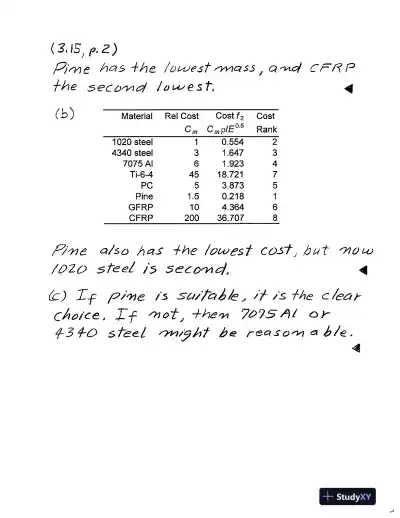 (3.15, p.2)
Pine has the lowest mass, and CFRP
the second lowest.
(b)
Material Rel Cost Cost f2 Cost
Cm Cmρ/E^0.5 Rank
1020 steel 1 0.554 2
4340 steel 3 1.647 3
7075 Al 6 1.923 4
Ti-6-4 45 18.721 7
PC 5 3.873 5
Pine 1.5 0.218 1
GFRP 10 4.364 6
CFRP 200 36.707 8
Pine also has the lowest cost, but now
1020 steel is second.
(c) If pine is suitable, it is the clear
choice. If not, then 7075 Al or
4340 steel might be reasonable.
StudyXY